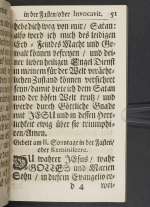 in der Fasten/ oder Invocavit. 51
hebe dich weg von mir/ Satan:
also werd ich mich des leidigen
Erb-Feindes Macht und Ge-
walt können befreyen/ und dei-
ner lieben heiligen Engel Dienst
in meinem für der Welt verächt-
lichen Zustand können versichert
seyn/ damit dieweil dem Satan
und der bösen Welt trutz/ und
werde durch Göttliche Gnade
mit JESU und in dessen Herr-
lichkeit ewig über sie triumphi-
ren/ Amen.
Gebett am II. Sonntage in der Fasten/
oder Reminiscere.
DU wahrer JEsus/ wahr
GOTTES und Marien
Sohn/ in diesem Evangelio er-
d 4